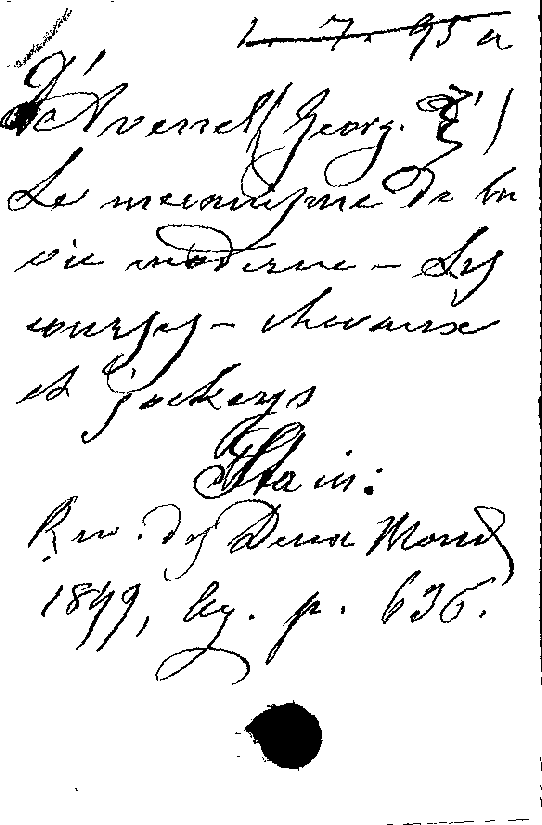 1. 7. 95 a
D'Avenel (Georg. )
Le mecanisme de la
vie moderne - Les
courses - chevaux
et jockeys
Sta in:
Rev. des Deux Mond
1899, p. 636.